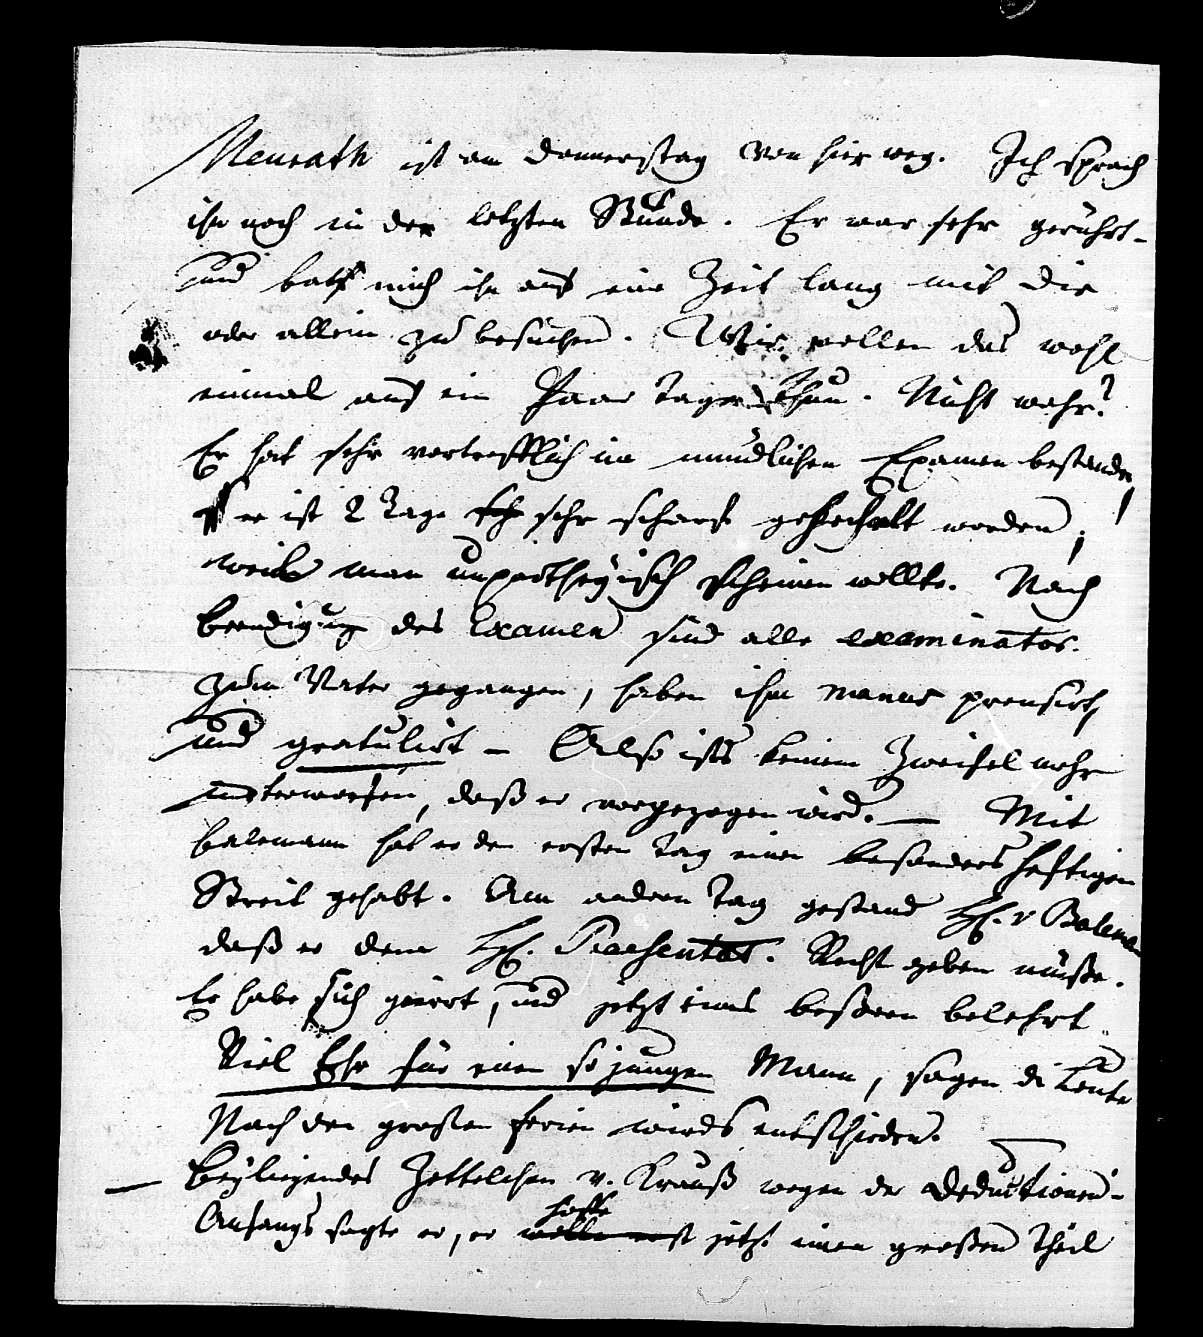 Neurath ist am Donnerstag von hier weg. Ich sprach
ihn noch in der letzten Stunde. Er war sehr gerührt-
und bath mich ihn auf eine Zeit lang mit Dir
oder allein zu besuchen. Wir wollen das wohl
einmal auf ein Paar Tage thun. Nicht wahr?
Er hat sehr vortrefflich im mündlichen Examen bestanden,
er ist 2 Tage sehr scharf gehechelt worden,
weil man unpartheyisch scheinen wollte. Nach
Beendigung des Examen sind alle examinator.
zum Vater gegangen, haben ihm manus prensirt,
und gratulirt – Also ists keinem Zweifel mehr
unterworfen, daß er vorgezogen wird. — Mit
Balemann hat er den ersten Tag einen besonders heftigen
Streit gehabt. Am andern Tag gestand H. v Balem
daß er dem H. Praesentat. Recht geben müße.
Er habe sich geirrt, und jetzt eines beßeren belehrt
Viel Ehr für einen so jungen Mann, sagen di Leute
Nach den großen Ferien wirds entschieden.
— Beyliegendes Zettelchen v. Krauß wegen der Deductionen-
Anfangs sagte er, er hoffe jetzt einen großen Theil